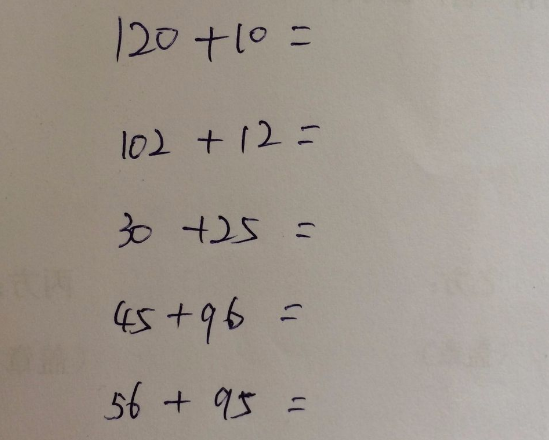 120+10=
102+12=
30+25=
45+96=
56+95=